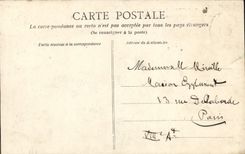 CARTE POSTALE
La correspondance au recto n'est pas acceptée par tous les pays étrangers
(Se renseigner à la poste)
Partie réservée à la correspondance
Adresse du destinataire
Mademoiselle Mireille
Maison
13 rue Delaborde
Paris